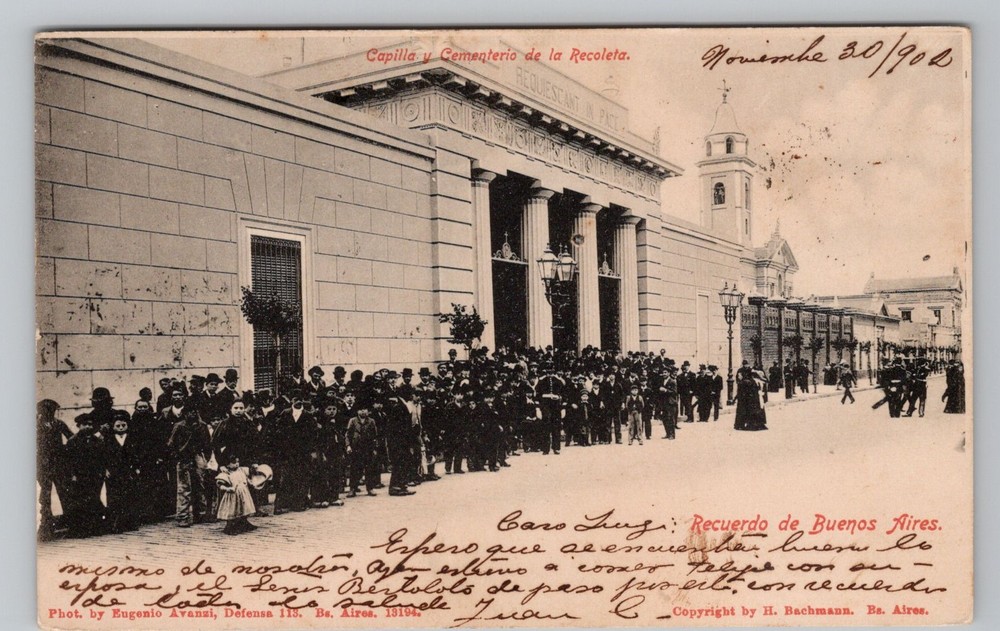 Capilla y Cementerio de la Recoleta.
Noviembre 30/902
REQUIESCANT IN PACE
Caro Luigi:
Recuerdo de Buenos Aires.
Espero que se encuentren bueno lo
mismo de nosotros, Ayer estuvo a comer Felipe con su
esposa, y el Señor Bertololo de paso por esta. con recuerdos
de
Juan C
Phot. by Eugenio Avanzi, Defensa 113. Bs. Aires. 13194.
Copyright by H. Bachmann. Bs. Aires.